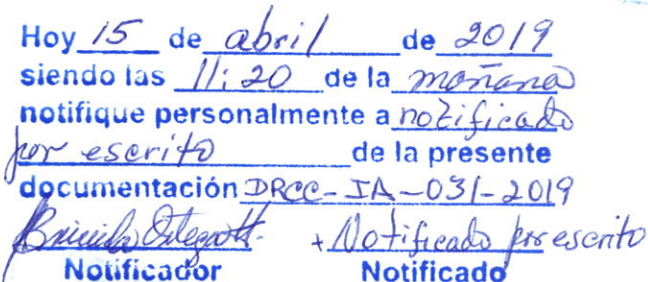 Hoy 15 de abril de 2019
siendo las 11:20 de la mañana
notifique personalmente a notificado
por escrito de la presente
documentación DRCC-IA-031-2019
+ Notificado por escrito
Notificador Notificado